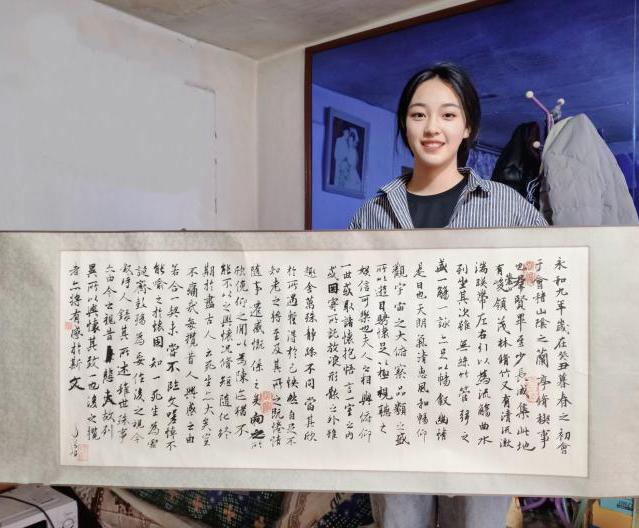 永和九年歲在癸丑暮春之初會
于會稽山陰之蘭亭脩禊事
也群賢畢至少長咸集此地
有崇山峻領茂林脩竹又有清流激
湍暎帶左右引以為流觴曲水
列坐其次雖無絲竹管弦之
盛一觴一詠亦足以暢敘幽情
是日也天朗氣清惠風和暢仰
觀宇宙之大俯察品類之盛
所以遊目騁懷足以極視聽之
娛信可樂也夫人之相與俯仰
一世或取諸懷抱悟言一室之內
或因寄所託放浪形骸之外雖
趣舍萬殊靜躁不同當其欣
於所遇暫得於己快然自足不
知老之將至及其所之既惓情
隨事遷感慨係之矣向之所
欣俛仰之閒以為陳迹猶不
能不以之興懷況脩短隨化終
期於盡古人云死生亦大矣豈
不痛哉每攬昔人興感之由
若合一契未嘗不臨文嗟悼不
能喻之於懷固知一死生為虛
誕齊彭殤為妄作後之視今
敘時人錄其所述雖世殊事
亦由今之視昔悲夫故列
異所以興懷其致一也後之攬
者亦將有感於斯文